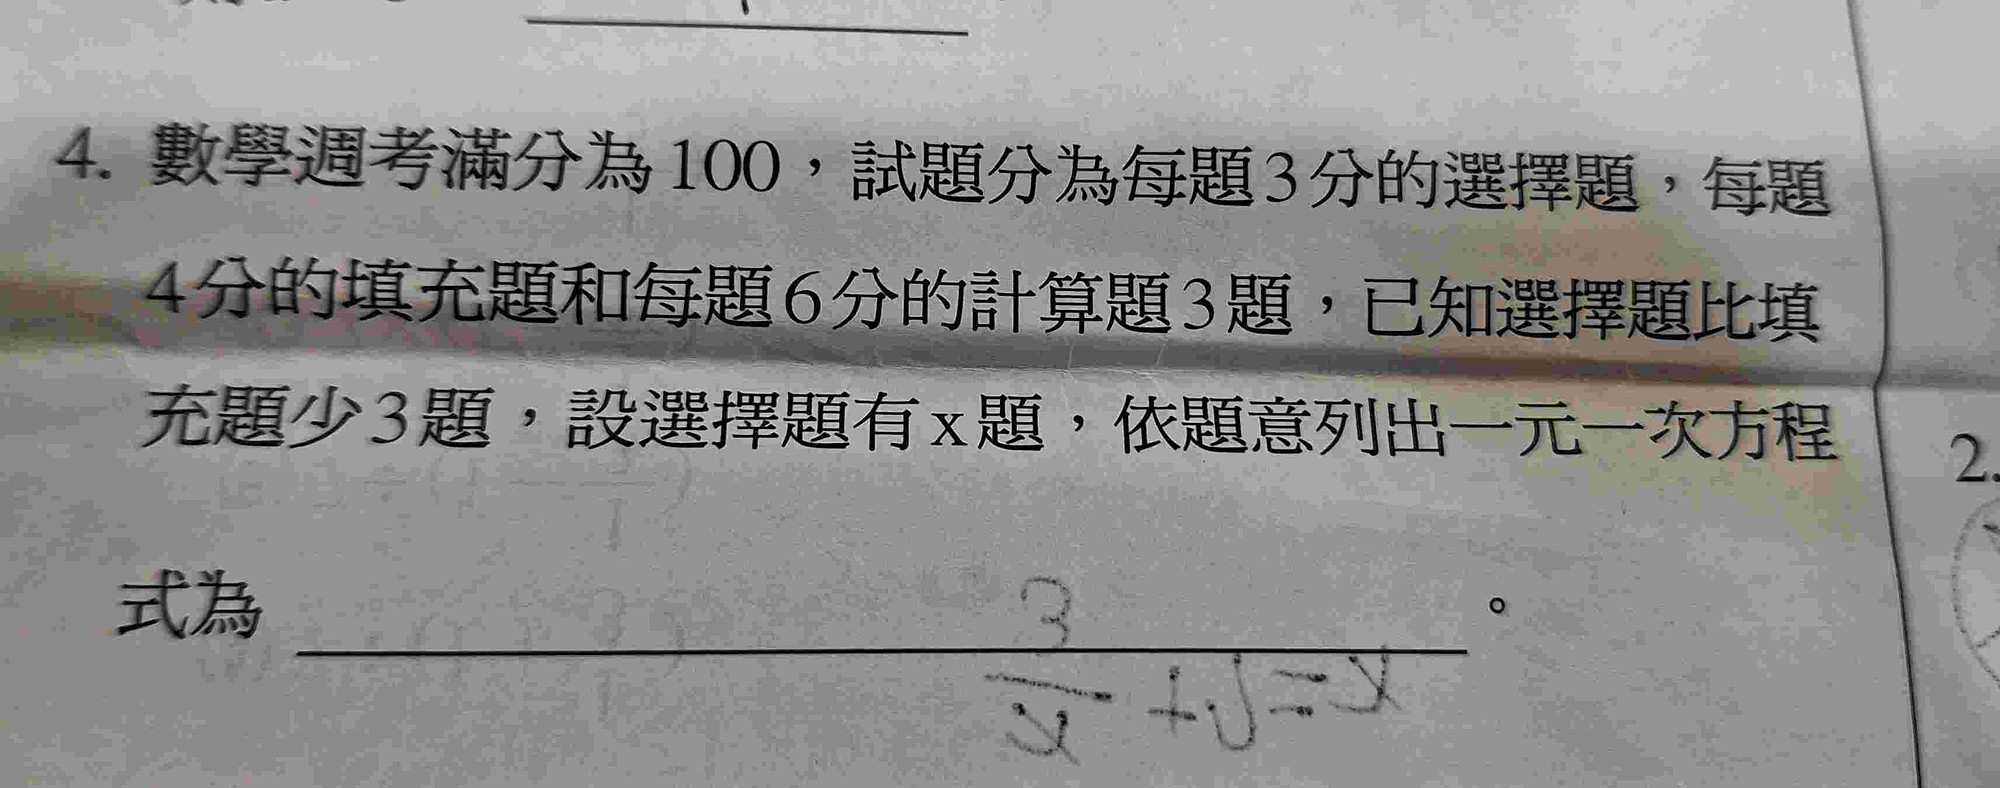 4. 數學週考滿分為100，試題分為每題3分的選擇題，每題
4分的填充題和每題6分的計算題3題，已知選擇題比填
充題少3題，設選擇題有x題，依題意列出一元一次方程
式為　　　　。
3
2.